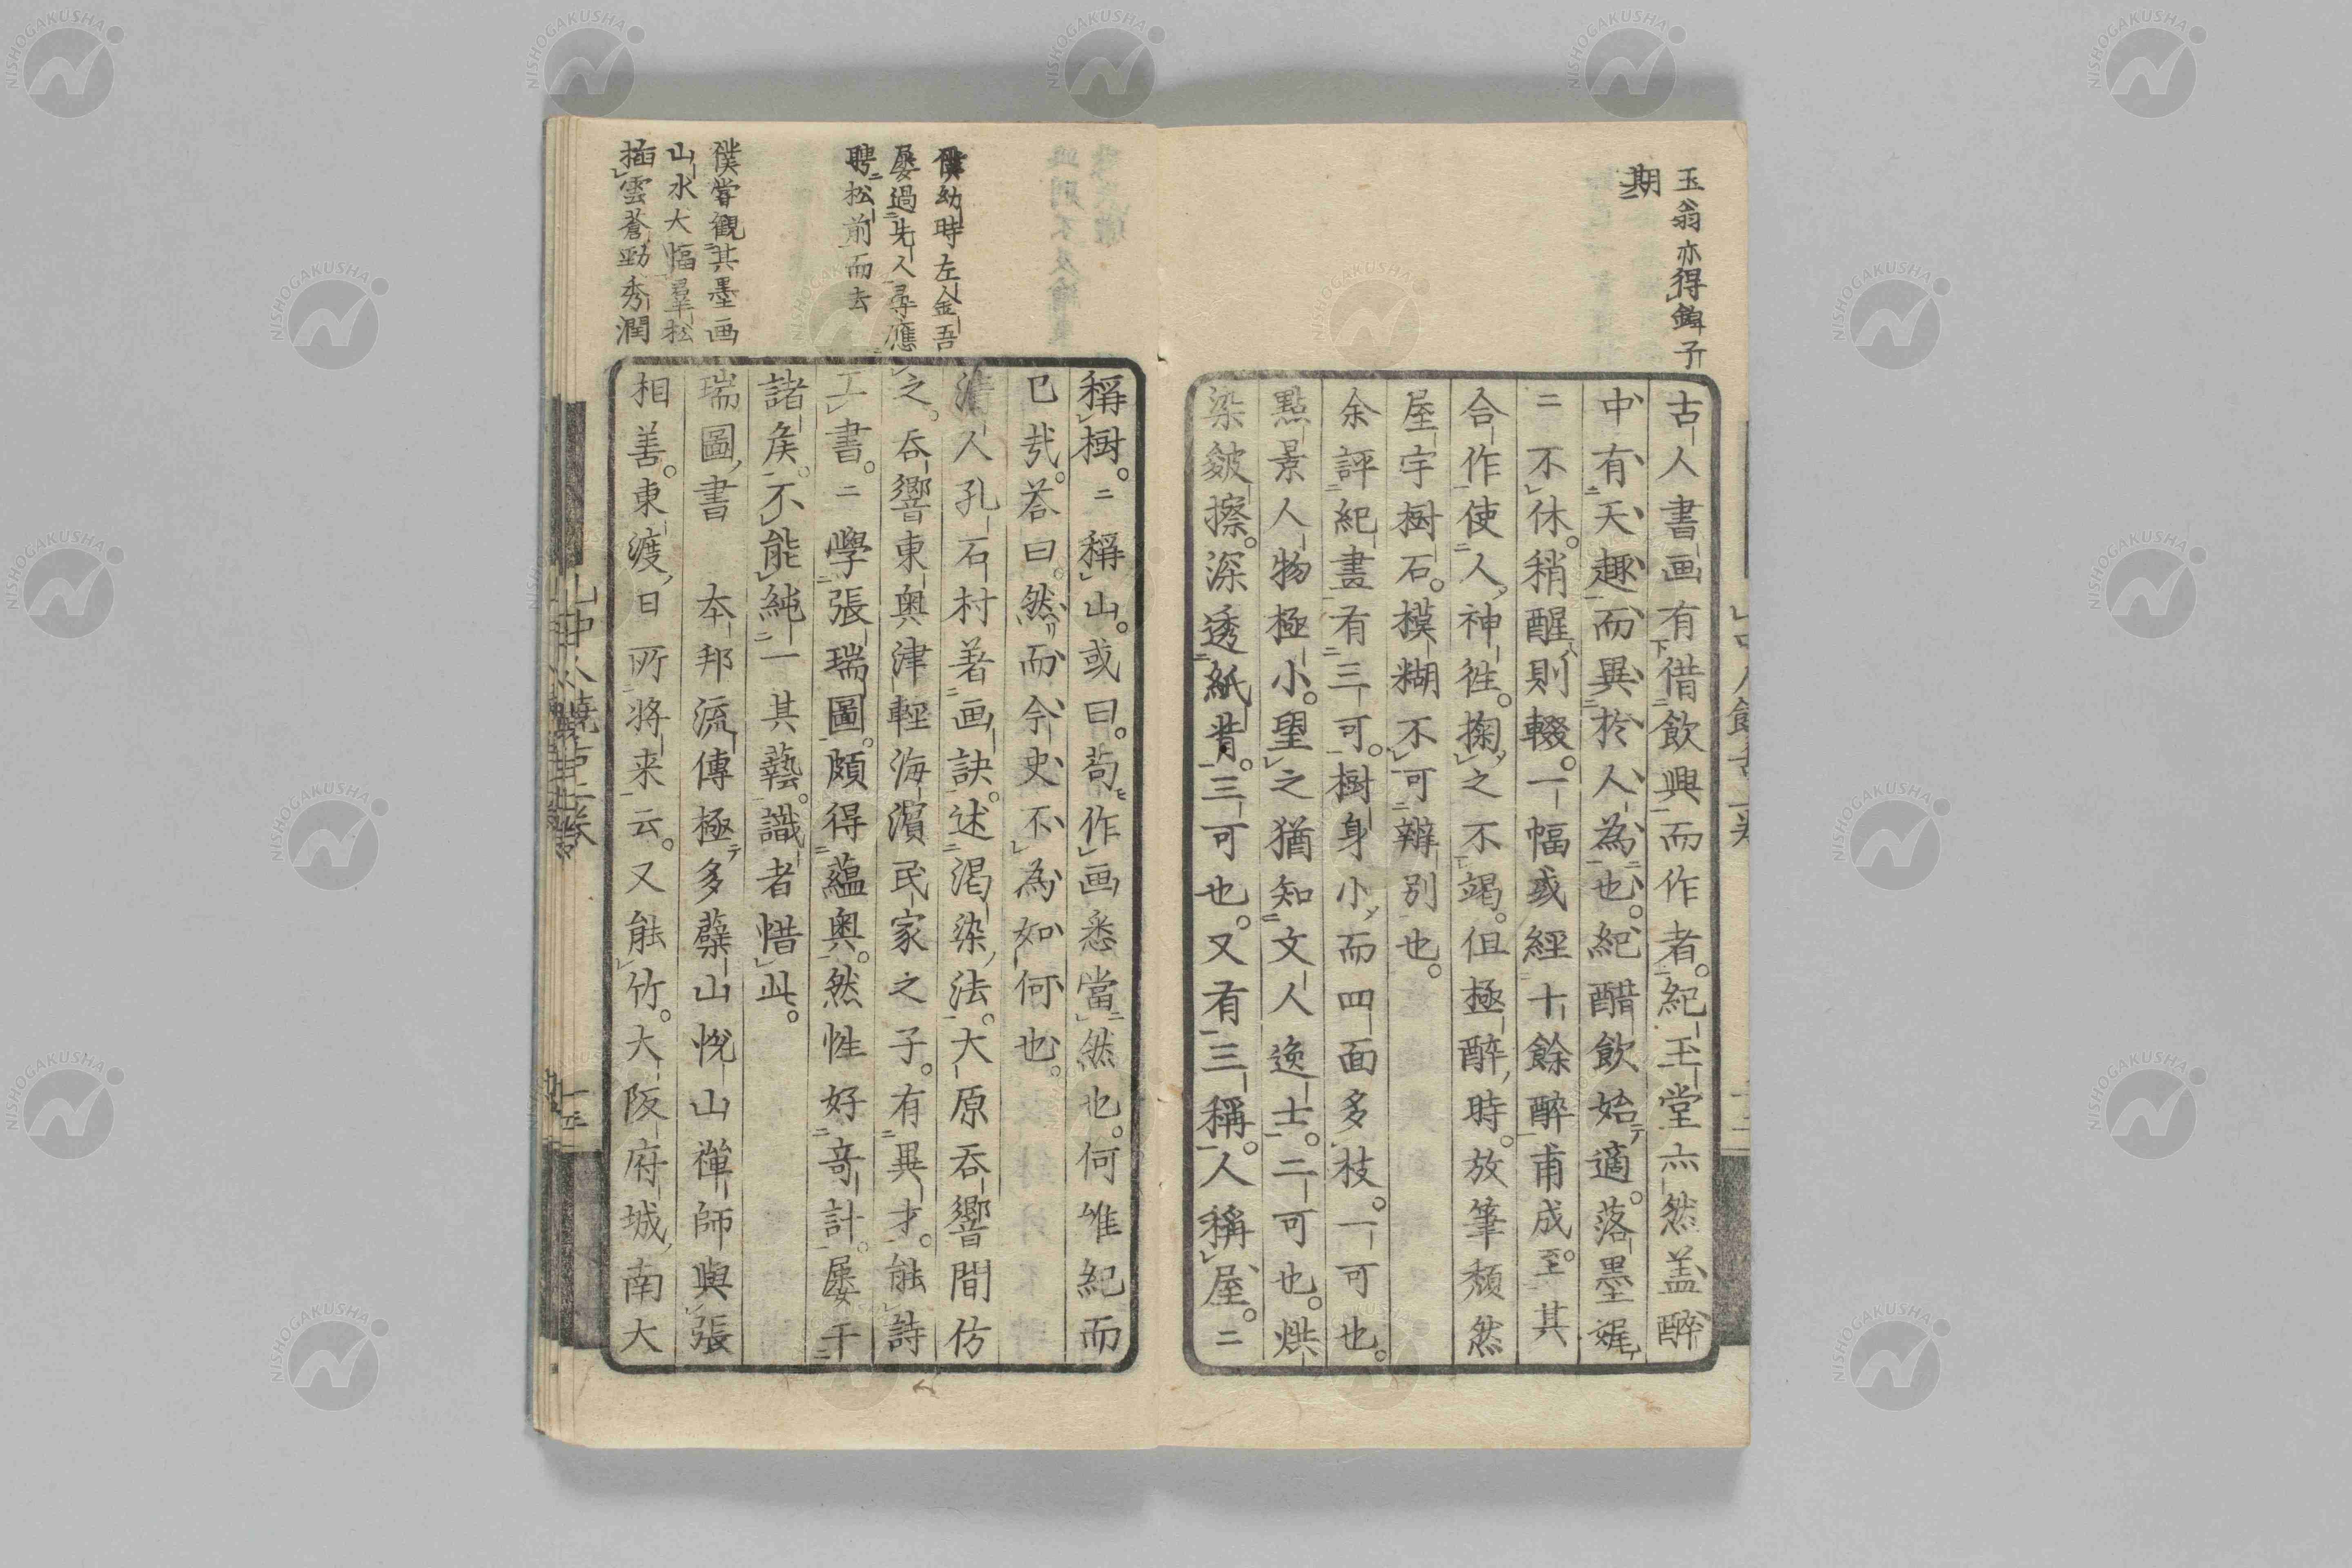 玉翁亦得鍾子
期
古人書画有借飲興而作者紀玉堂亦然盖醉
中有天趣而異於人為也。紀醋飲始適。落墨娓
二不休。稍醒則輟。一幅或經十餘醉甫成。至其
合作使人神徃。掬之不竭。但極醉時。放筆頽然
屋宇樹石。摸糊不可辨別也。
余評紀畫有三可。樹身小而四面多枝。一可也。
點景人物極小。望之猶知文人逸士。二可也。烘
染皴擦。深透紙背。三可也。又有三稱。人稱屋。二
稱樹。二稱山。或曰。苟作画悉當然也。何唯紀而
已哉。答曰。然而今史不為如何也。
僕幼時左金吾
屡過先人尋應
聘松前而去
清人孔石村著画訣。述渇染法。大原呑響間仿
之。呑響東奥津輕海濵民家之子。有異才。能詩
工書。二學張瑞圖。頗得蘊奥。然性好竒計。屡干
諸矦。不能純一其藝。識者惜此。
僕嘗觀其墨画
山水大幅羣松
插雲蒼勁秀潤
瑞圖書 本邦流傳極多蘗山悅山禅師與張
相善。東渡日所将来云。又能竹。大阪府城南大